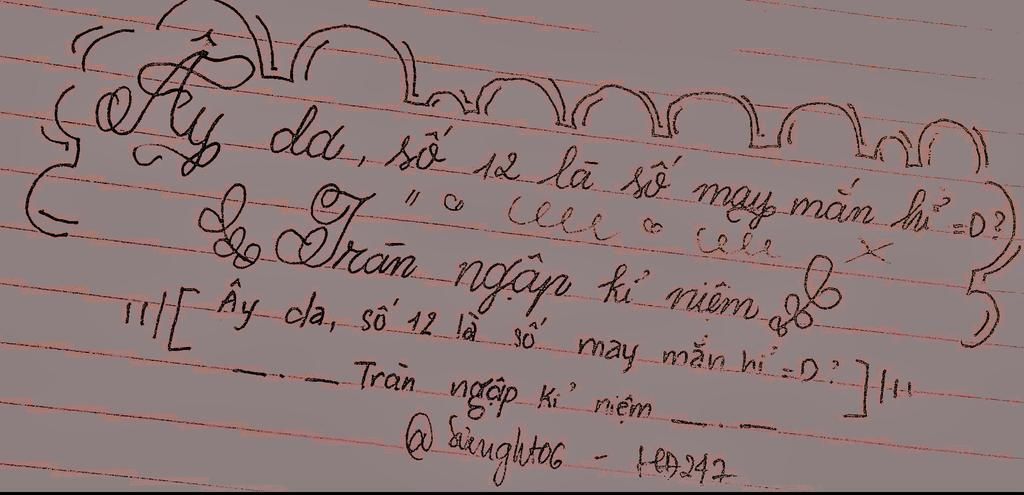 Ây da, số 12 là số may mắn hỉ =D?
Tràn ngập kỉ niệm
[ Ây da, số 12 là số may mắn hỉ =D? ]
Tràn ngập kỉ niệm
- HD247